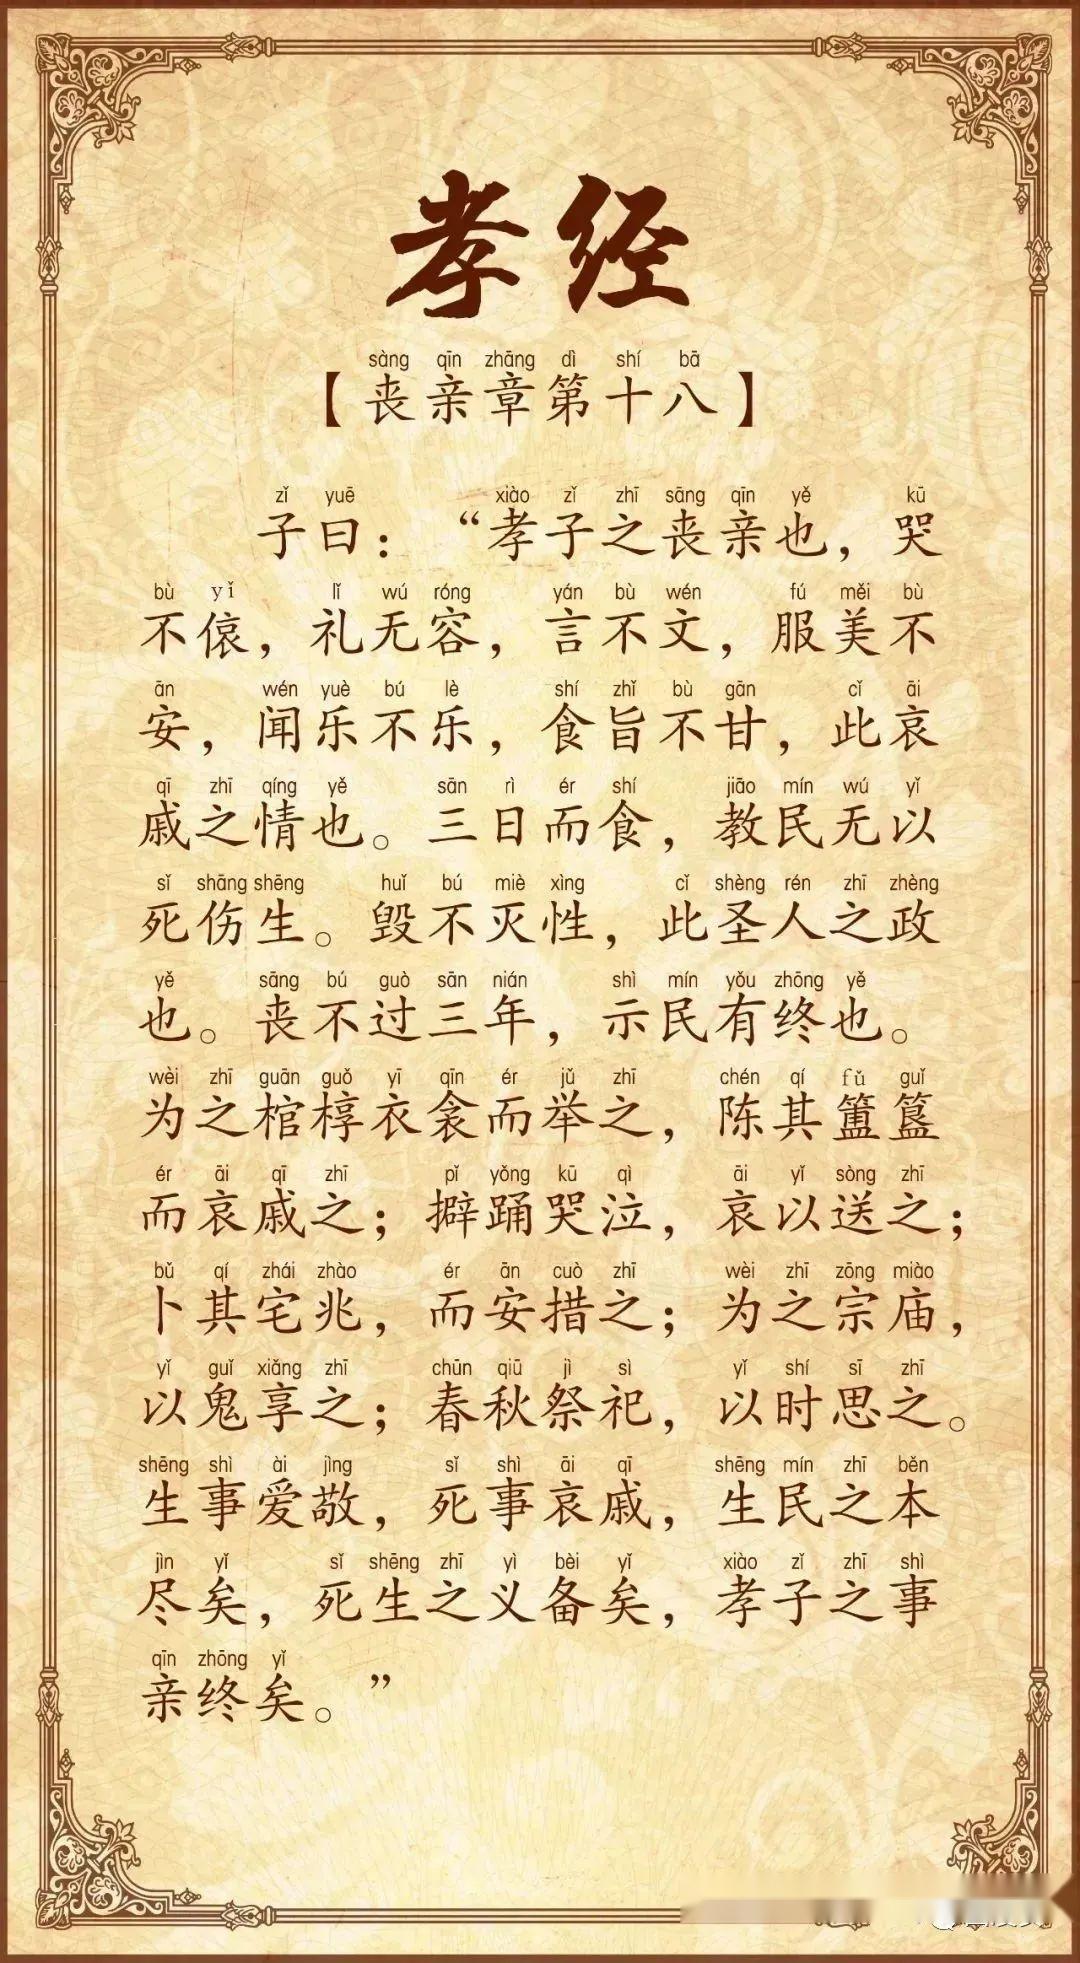 孝经
sàng qīn zhāng dì shí bā
【丧亲章第十八】
zǐ yuē xiào zǐ zhī sāng qīn yě kū
子曰：“孝子之丧亲也，哭
bù yǐ lǐ wú róng yán bù wén fú měi bù
不偯，礼无容，言不文，服美不
ān wén yuè bú lè shí zhǐ bù gān cǐ āi
安，闻乐不乐，食旨不甘，此哀
qī zhī qíng yě sān rì ér shí jiāo mín wú yǐ
戚之情也。三日而食，教民无以
sǐ shāng shēng huǐ bú miè xìng cǐ shèng rén zhī zhèng
死伤生。毁不灭性，此圣人之政
yě sāng bú guò sān nián shì mín yǒu zhōng yě
也。丧不过三年，示民有终也。
wèi zhī guān guǒ yī qīn ér jǔ zhī chén qí fǔ guǐ
为之棺椁衣衾而举之，陈其簠簋
ér āi qī zhī pǐ yǒng kū qì āi yǐ sòng zhī
而哀戚之；擗踊哭泣，哀以送之；
bǔ qí zhái zhào ér ān cuò zhī wèi zhī zōng miào
卜其宅兆，而安措之；为之宗庙，
yǐ guǐ xiǎng zhī chūn qiū jì sì yǐ shí sī zhī
以鬼享之；春秋祭祀，以时思之。
shēng shì ài jìng sǐ shì āi qī shēng mín zhī běn
生事爱敬，死事哀戚，生民之本
jìn yǐ sǐ shēng zhī yì bèi yǐ xiào zǐ zhī shì
尽矣，死生之义备矣，孝子之事
qīn zhōng yǐ
亲终矣。”